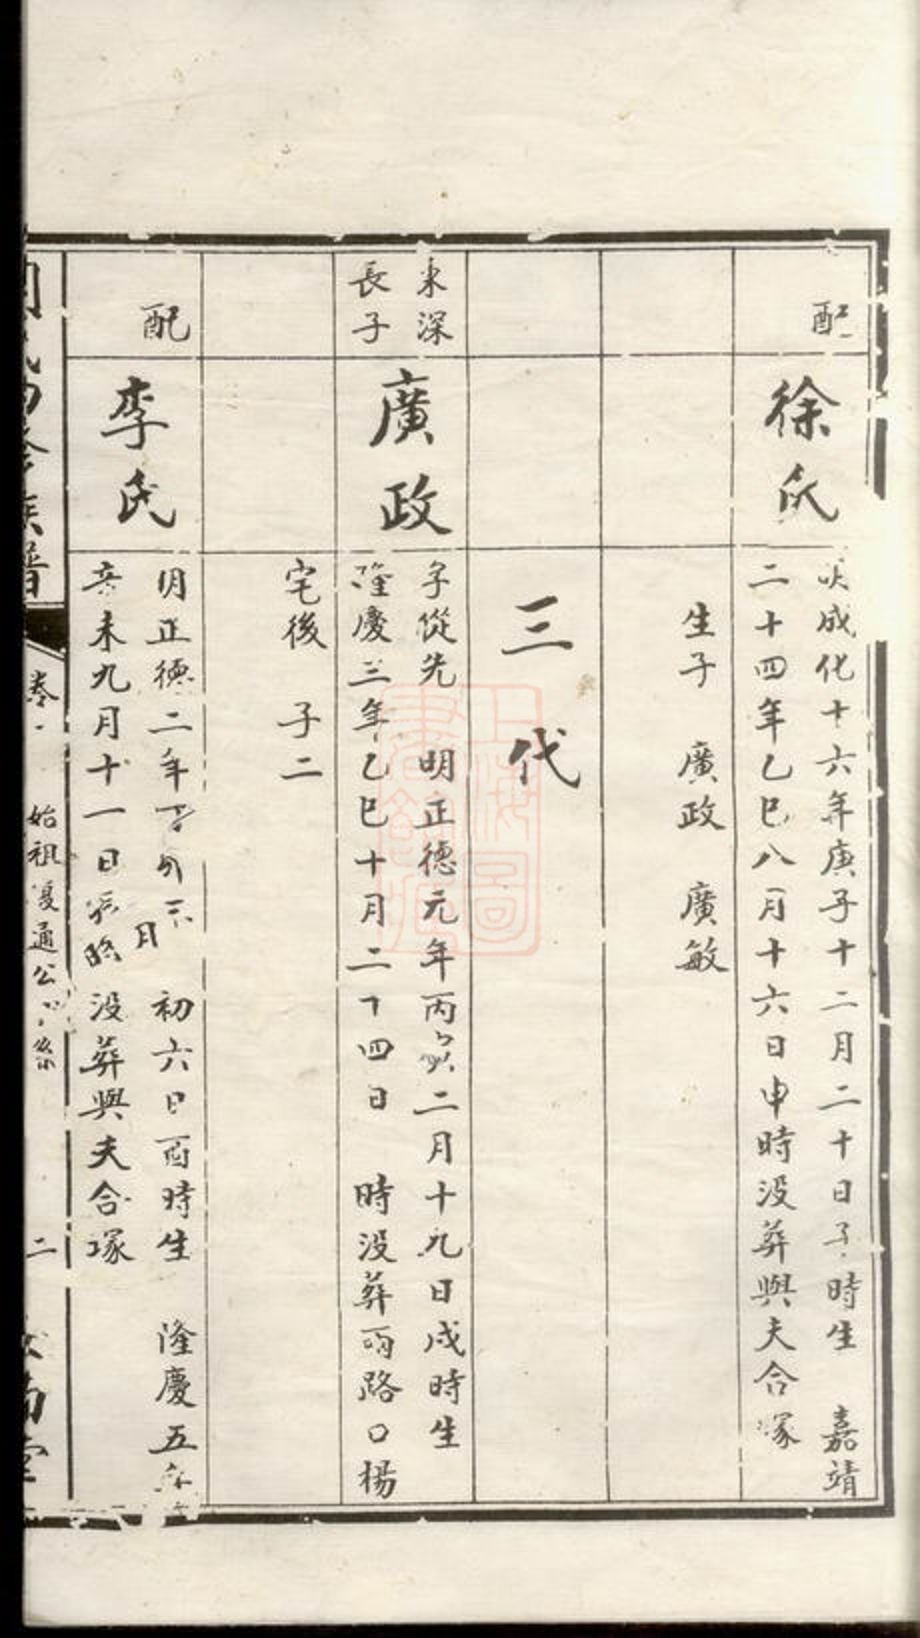 配
徐氏
成化十六年庚子十二月二十日子時生 嘉靖
二十四年乙巳八月十六日申時没葬與夫合塚
生子 廣政 廣敏
三代
東深
長子
廣政
字從先 明正德元年丙寅二月十九日戌時生
隆慶三年乙巳十月二十四日 時没葬兩路口楊
宅後 子二
配
李氏
明正德二年 月 初六日酉時生 隆慶五年
辛未九月十一日 時没葬與夫合塚
族譜
卷一
始祖 通公 系
二
堂
上海圖書館藏